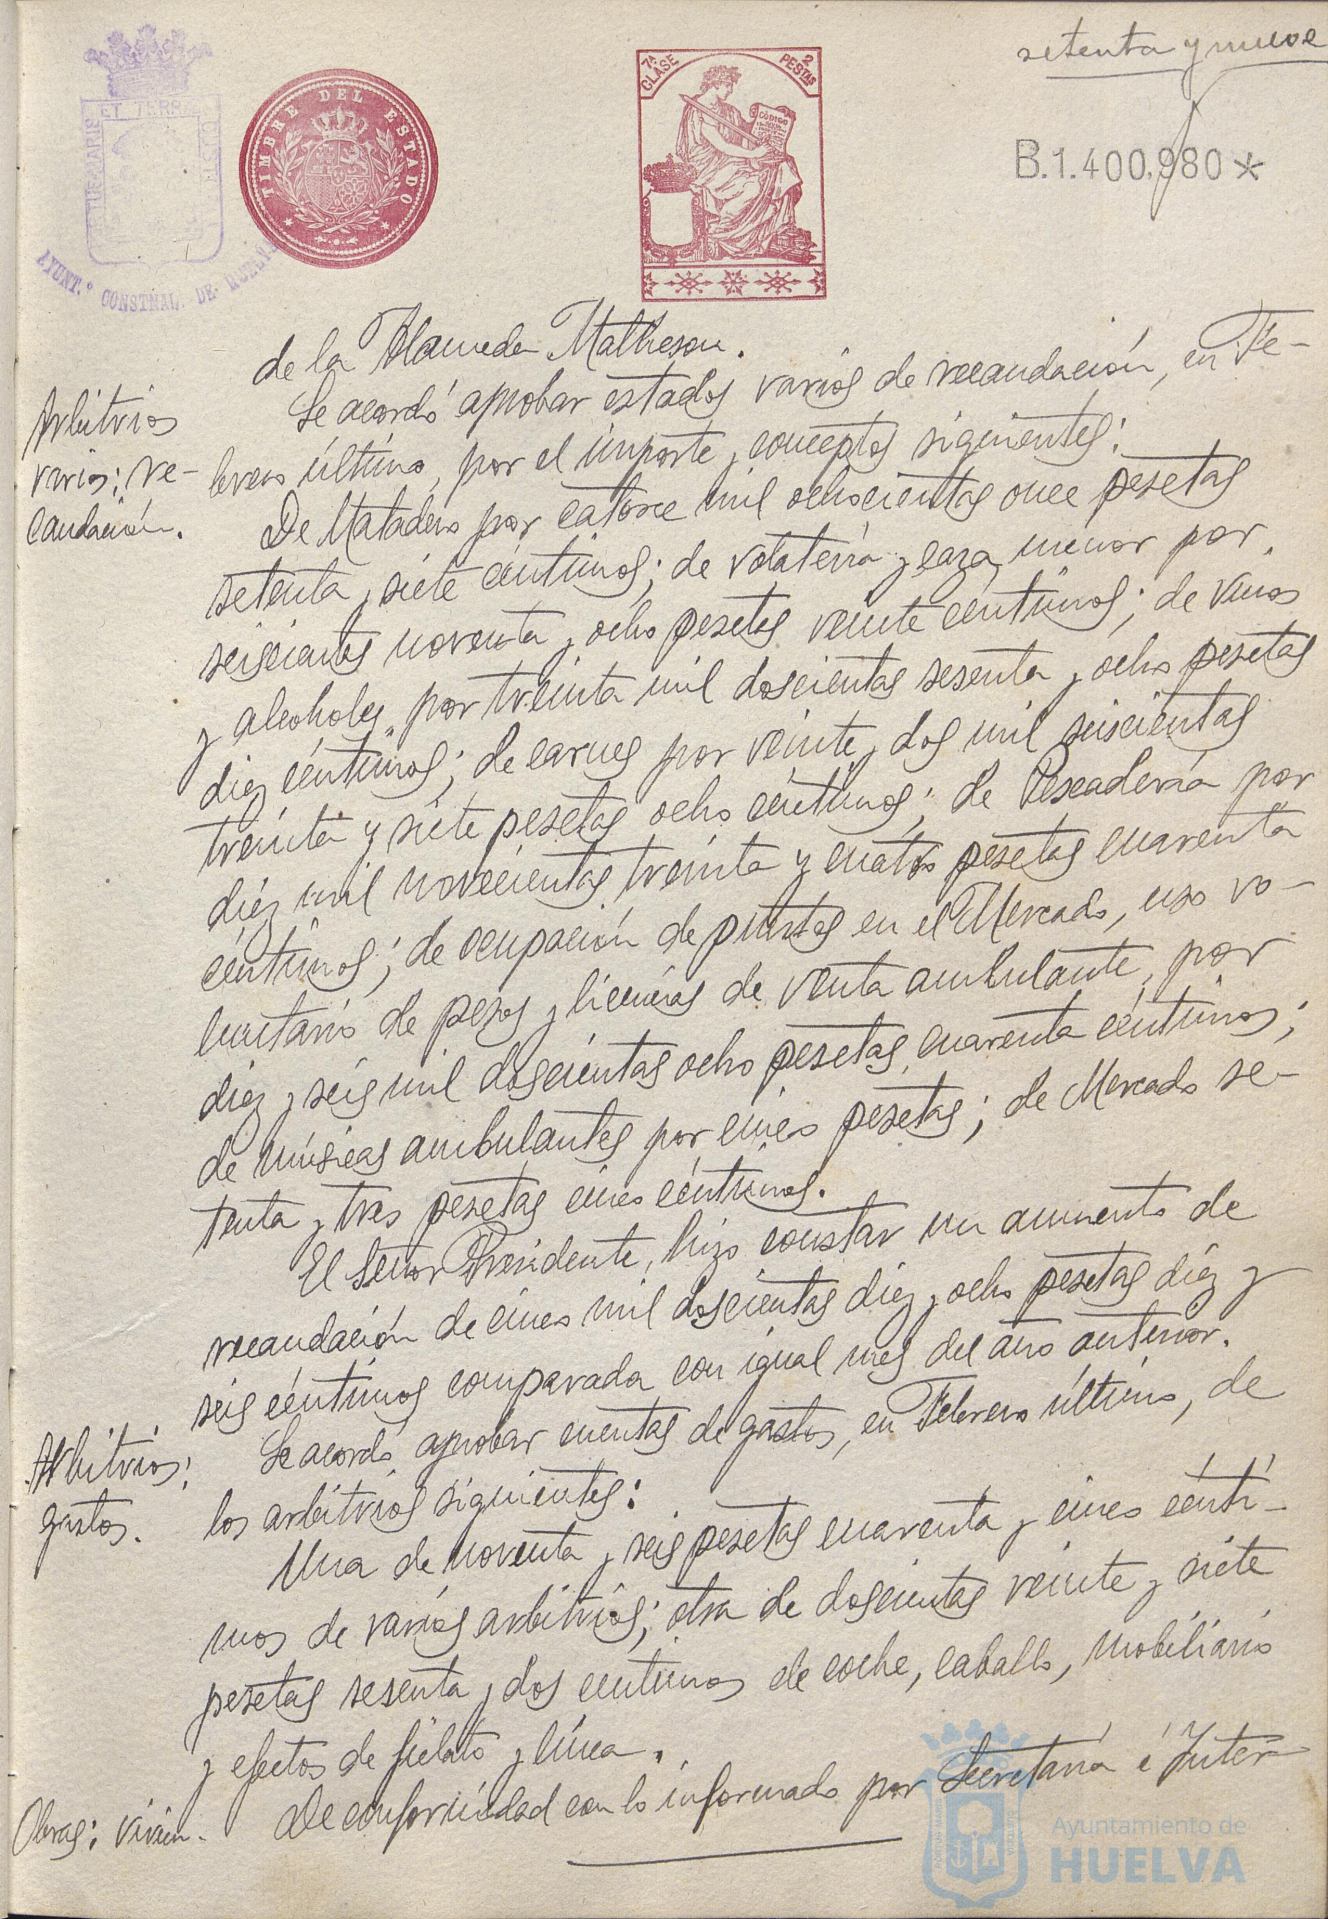 setenta y nueve
TIMBRE DEL ESTADO
7ª CLASE
2 PESTAS
CÓDIGO
B.1.400.980*
AYUNT.º CONSTNAL. DE HUELVA
de la Alameda Matheson.
Arbitrios varios: recaudación.
Se acordó aprobar estados varios de recaudación, en Fe-
brero último, por el importe y conceptos siguientes:
De Matadero por catorce mil ochocientas once pesetas
setenta y siete céntimos; de volatería y caza menor por
seiscientas noventa y ocho pesetas veinte céntimos; de vinos
y alcoholes por treinta mil doscientas sesenta y ocho pesetas
diez céntimos; de carnes por veinte y dos mil seiscientas
treinta y siete pesetas ocho céntimos; de Pescadería por
diez mil novecientas treinta y cuatro pesetas cuarenta
céntimos; de ocupación de puestos en el Mercado, uso vo-
luntario de pesos y licencias de venta ambulante, por
diez y seis mil doscientas ocho pesetas cuarenta céntimos;
de músicas ambulantes por cinco pesetas; de Mercado se-
tenta y tres pesetas cinco céntimos.
El Señor Presidente, hizo constar un aumento de
recaudación de cinco mil doscientas diez y ocho pesetas diez y
seis céntimos comparada con igual mes del año anterior.
Arbitrios: gastos.
Se acordó aprobar cuentas de gastos, en Febrero último, de
los arbitrios siguientes:
Una de noventa y seis pesetas cuarenta y cinco cénti-
mos de varios arbitrios; otra de doscientas veinte y siete
pesetas sesenta y dos centimos de coche, caballo, mobiliario
y efectos de fielato y línea.
Obras:
De conformidad con lo informado por Secretaría é Inter-
Ayuntamiento de
HUELVA